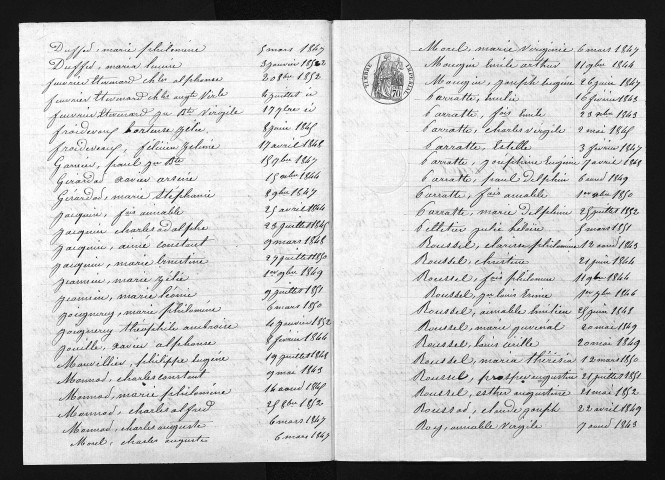 Duffed, marie philomène 5 mars 1847
Duffed, marie louise 3 janvier 1852
chles alphonse 20 8bre 1852
6 juillet id
Virgile 17 id
froidevaux, hortense Zélie 8 juin 1845
froidevaux, félicien Zélime 17 avril 1848
Garnier, paul jn Bte 15 9bre 1847
Girardod xavier arsène 15 1844
Girardod, marie stéphanie 8 9bre 1847
Jacquin, fois aimable 25 avril 1844
Jacquin charles adolphe 23 juillet 1845
Jacquin, aimé constant 9 mars 1848
Jacquin, marie ernestine 27 juillet 1850
Jeannin, marie Zélie 1er 9bre 1849
Jeannin, marie léonie 9 juillet 1851
Joignerey, marie philomène 6 mars 1850
Joignerey théophile ambroise 16 janvier 1852
Jouille, xavier alphonse 8 février 1844
Mauvillier, philippe Eugène 19 juillet 1848
Monnod, charles constant 9 mai 1843
Monnod, marie philomène 16 aout 1845
Monnod, charles alfred 25 8bre 1852
Monnod, charles auguste 6 mars 1847
Morel, charles auguste 6 mars 1847
TIMBRE IMPERIAL
70
Morel, marie virginie 6 mars 1847
Mougin Emile arthur 11 9bre 1844
Mougin, joseph Eugène 26 juin 1847
Parratte, Emélie 16 février 1843
Parratte, fois Emile 23 1843
Parratte, charles virgile 2 mai 1845
Parratte, Estelle 3 février 1847
Parratte, joséphine Eugénie 7 avril 1848
Parratte, paul delphin 6 avril 1849
Parratte, fois aimable 1er 1850
Parratte, marie delphine 25 juillet 1852
Pelletier julie héloïse 5 mars 1851
Roussel, clarisse philomène 12 aout 1843
Roussel, christine 21 juin 1844
Roussel, fois philomin 11 9bre 1844
Roussel, jn louis 1er 7bre 1844
Roussel, aimable Emilien 25 juin 1848
Roussel, marie juvenal 20 mai 1849
Roussel, louis Cécille 20 mai 1849
Roussel, maria thérésia 12 mars 1850
Roussel, prosper augustin 21 juillet 1851
Roussel, esther augustine 21 mai 1852
Roussod, claude joseph 22 avril 1849
Roy, aimable Virgile 7 aout 1843